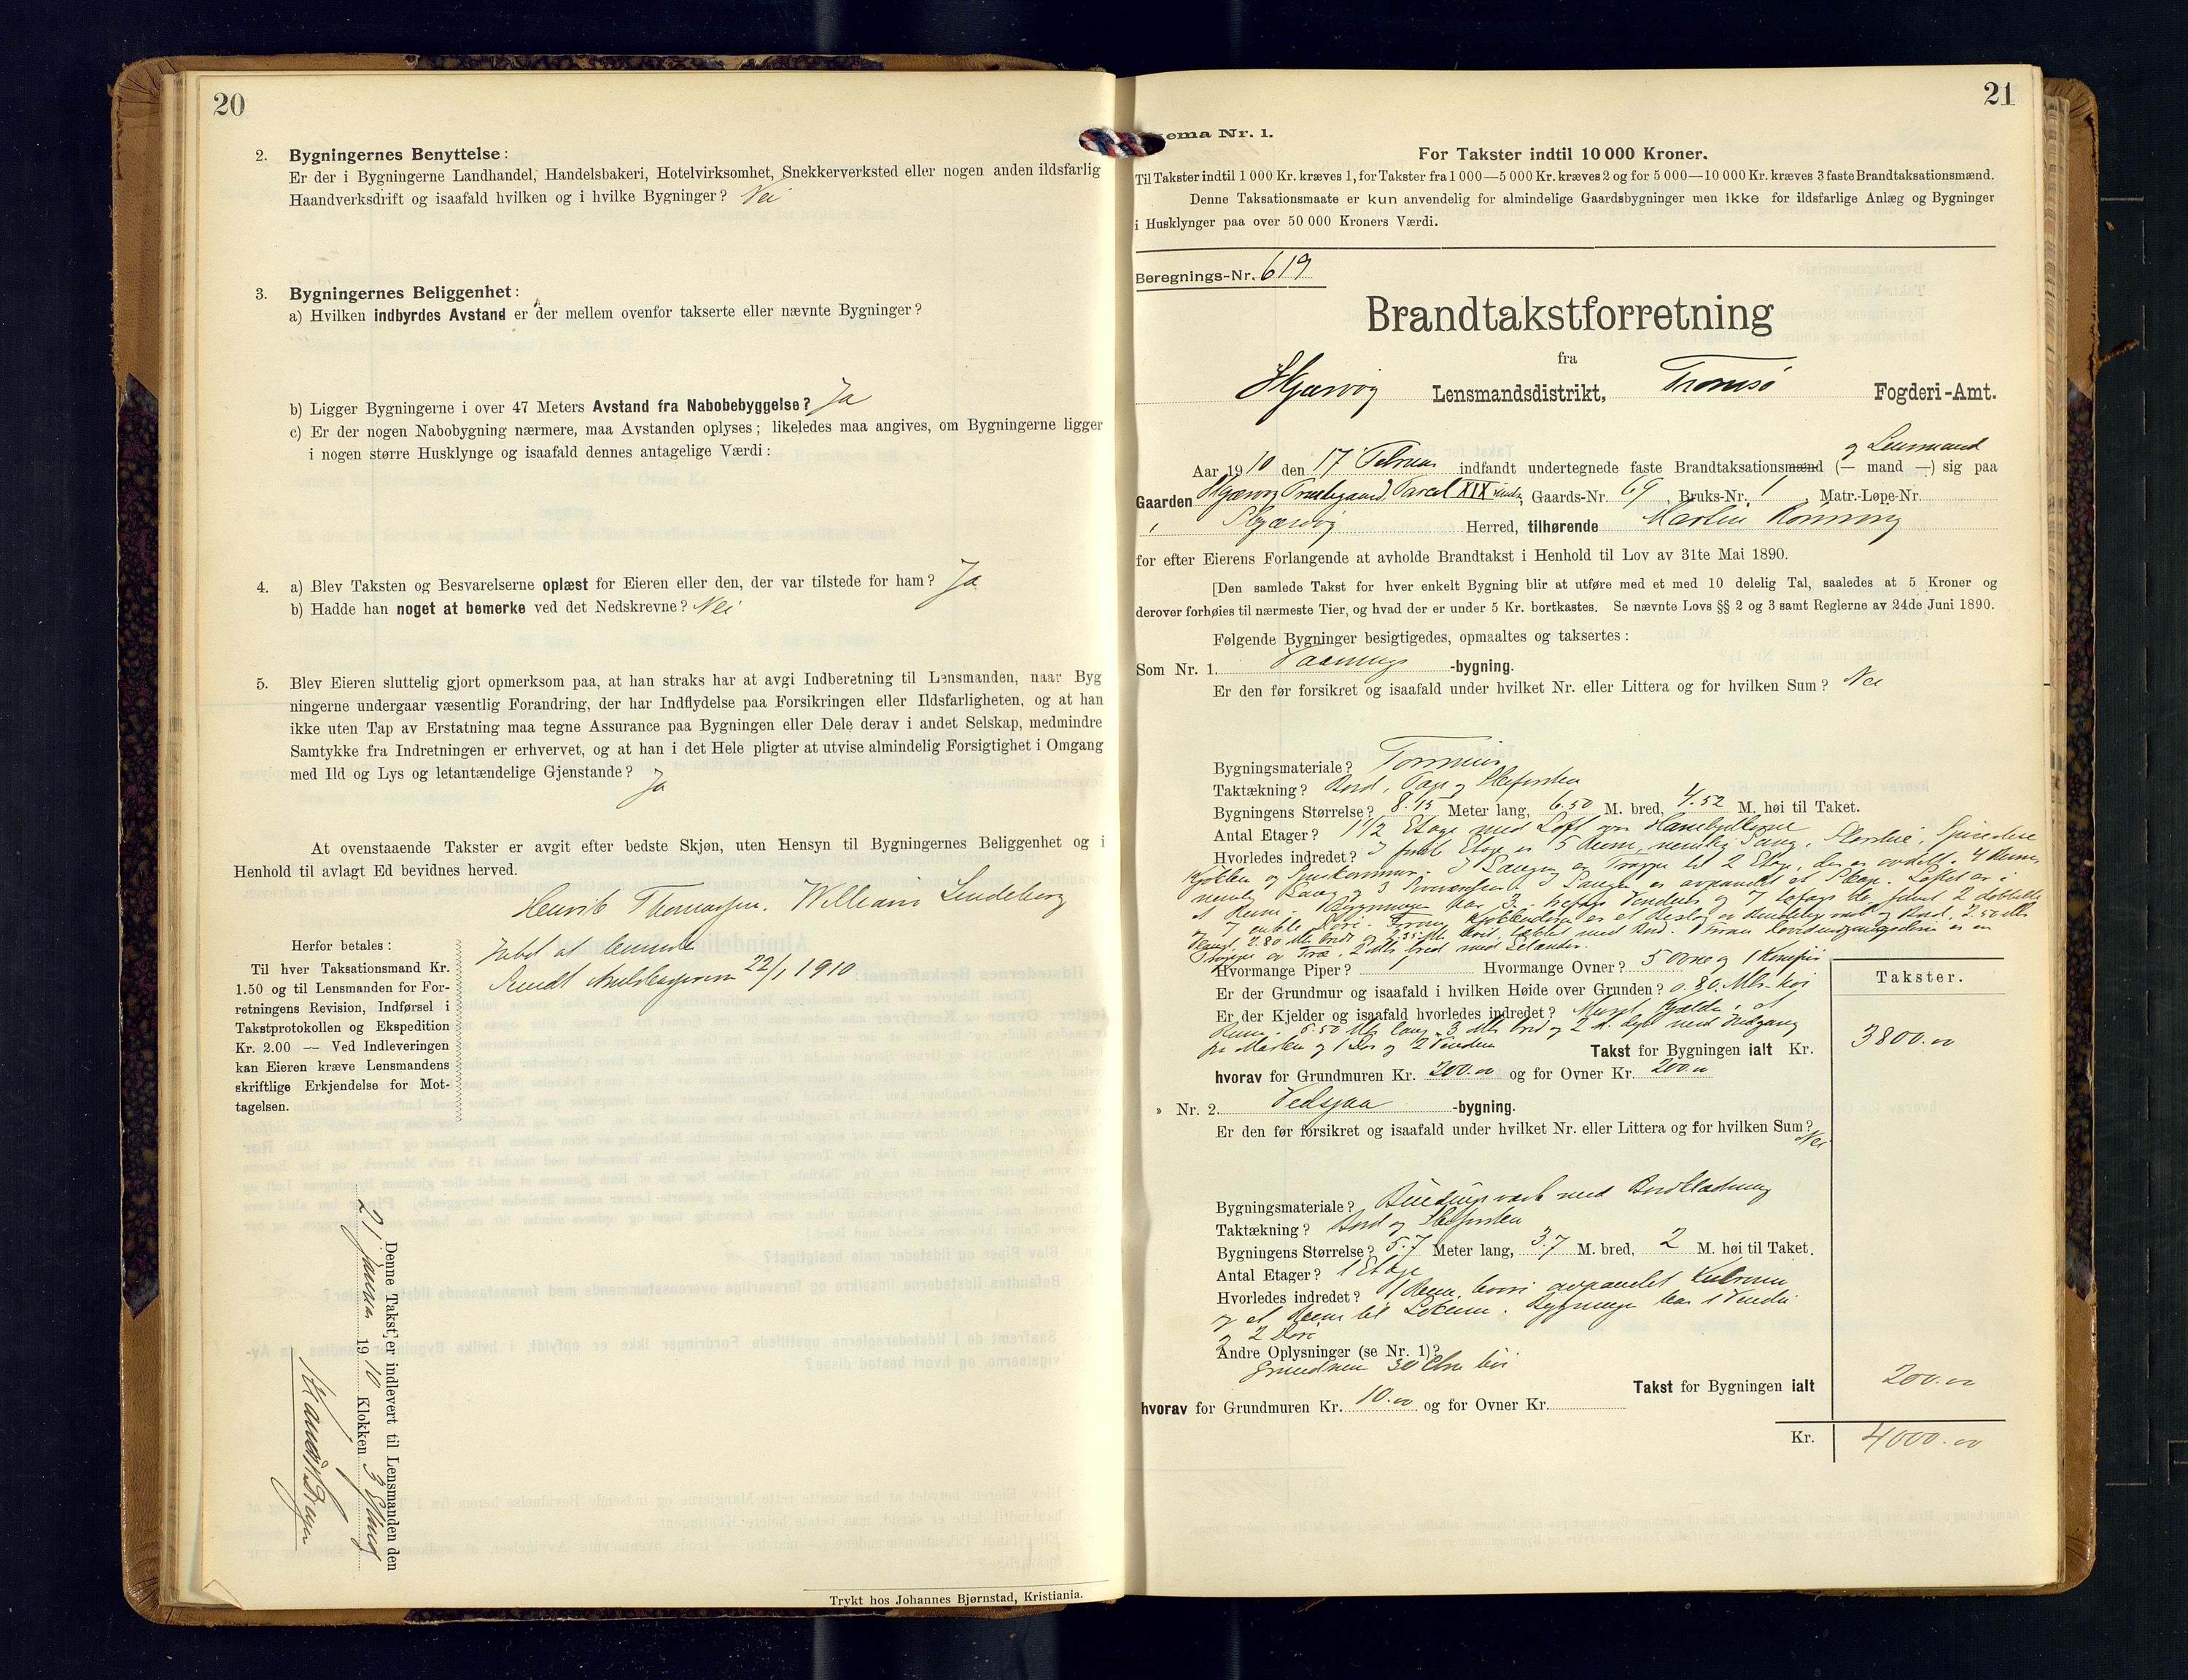 20
2. Bygningernes Benyttelse:
Er der i Bygningerne Landhandel, Handelsbakeri, Hotelvirksomhet, Snekkerverksted eller nogen anden ildsfarlig
Haandverksdrift og isaafald hvilken og i hvilke Bygninger? Nei
3. Bygningernes Beliggenhet:
a) Hvilken indbyrdes Avstand er der mellem ovenfor takserte eller nævnte Bygninger?
b) Ligger Bygningerne i over 47 Meters Avstand fra Nabobebyggelse? Ja
c) Er der nogen Nabobygning nærmere, maa Avstanden oplyses; likeledes maa angives, om Bygningerne ligger
i nogen større Husklynge og isaafald dennes antagelige Værdi:
4. a) Blev Taksten og Besvarelserne oplæst for Eieren eller den, der var tilstede for ham? Ja
b) Hadde han noget at bemerke ved det Nedskrevne? Nei
5. Blev Eieren sluttelig gjort opmerksom paa, at han straks har at avgi Indberetning til Lensmanden, naar Byg
ningerne undergaar væsentlig Forandring, der har Indflydelse paa Forsikringen eller Ildsfarligheten, og at han
ikke uten Tap av Erstatning maa tegne Assurance paa Bygningen eller Dele derav i andet Selskap, medmindre
Samtykke fra Indretningen er erhvervet, og at han i det Hele pligter at utvise almindelig Forsigtighet i Omgang
med Ild og Lys og letantændelige Gjenstande? Ja
At ovenstaaende Takster er avgit efter bedste Skjøn, uten Hensyn til Bygningernes Beliggenhet og i
Henhold til avlagt Ed bevidnes herved.
Henrik Thomassen. William Lindeberg
Herfor betales:
Til hver Taksationsmand Kr.
1.50 og til Lensmanden for For-
retningens Revision, Indførsel i
Takstprotokollen og Ekspedition
Kr. 2.00 — Ved Indleveringen
kan Eieren kræve Lensmandens
skriftlige Erkjendelse for Mot-
tagelsen.
Intet at bemerke
Sendt 22/1 1910
Denne Takst er indlevert til Lensmanden den
21 Januar 1910 Klokken 3
Trykt hos Johannes Bjørnstad, Kristiania.
21
ema Nr. 1.
For Takster indtil 10 000 Kroner.
Til Takster indtil 1 000 Kr. kræves 1, for Takster fra 1 000—5 000 Kr. kræves 2 og for 5 000—10 000 Kr. kræves 3 faste Brandtaksationsmænd.
Denne Taksationsmaate er kun anvendelig for almindelige Gaardsbygninger men ikke for ildsfarlige Anlæg og Bygninger
i Husklynger paa over 50 000 Kroners Værdi.
Beregnings-Nr. 619
Brandtakstforretning
fra
Skjærvøy Lensmandsdistrikt, Tromsø Fogderi-Amt.
og Lensmand
Aar 1910 den 17 Februar indfandt undertegnede faste Brandtaksationsmænd (— mand —) sig paa
Gaarden Skjærvø Præstegaard, Parcel XIX, Gaards-Nr. 69, Bruks-Nr. 1, Matr.-Løpe-Nr.
Skjærvøy Herred, tilhørende Martin Rønning
for efter Eierens Forlangende at avholde Brandtakst i Henhold til Lov av 31te Mai 1890.
[Den samlede Takst for hver enkelt Bygning blir at utføre med et med 10 delelig Tal, saaledes at 5 Kroner og
derover forhøies til nærmeste Tier, og hvad der er under 5 Kr. bortkastes. Se nævnte Lovs §§ 2 og 3 samt Reglerne av 24de Juni 1890.
Følgende Bygninger besigtigedes, opmaaltes og taksertes:
Som Nr. 1. Vaanings -bygning.
Er den før forsikret og isaafald under hvilket Nr. eller Littera og for hvilken Sum? Nei
Bygningsmateriale? Tømmer
Taktækning? Bord, Pap og Skifersten
Bygningens Størrelse? 8.15 Meter lang, 6.50 M. bred, 4.52 M. høi til Taket.
Antal Etager? 1 1/2 Etage med Loft over Hanebjelkerne
Hvorledes indredet? I første Etage er 5 Rum, nemlig Gang, Storstue, Spisestue
Kjøkken og Spiskammer. I Gangen er Trappe til 2 Etage, der er avdelt i 4 Rum,
nemlig Gang og 3 Soveværelser. I Gangen er avpanelt et Skap. Loftet er i
et Rum. Bygningen har 3 Vinduer og 7 samt 2 dobbelte
og 7 enkle Døre.
Trappe av Træ, 2 Mtr. bred med Gelænder.
Hvormange Piper? 1 Hvormange Ovner? 5 Ovne og 1 Komfur
Er der Grundmur og isaafald i hvilken Høide over Grunden? 0.80 Mtr. høi
Er der Kjelder og isaafald hvorledes indredet? Muret Kjelder i et
Rum. 5.50 Mtr. lang, 3 Mtr. bred og 2 M. dyp med Nedgang
og 1 Dør og 2 Vinduer
Takst for Bygningen ialt Kr.
Takster.
3800.00
hvorav for Grundmuren Kr. 200.00 og for Ovner Kr. 200.00
» Nr. 2. Vedsjaa -bygning.
Er den før forsikret og isaafald under hvilket Nr. eller Littera og for hvilken Sum? Nei
Bygningsmateriale? Bindingsværk med Bordklædning
Taktækning? Bord og Skifersten
Bygningens Størrelse? 5.7 Meter lang, 3.7 M. bred, 2 M. høi til Taket.
Antal Etager? 1 Etage
Hvorledes indredet? 1 Rum, hvori avpanelet
og et Rum til Lokum. Bygningen har 1 Vindu
og 2 Døre
Andre Oplysninger (se Nr. 1)?
Grundmur 30 Ctm høi
Takst for Bygningen ialt 200.00
hvorav for Grundmuren Kr. 10.00 og for Ovner Kr.
Kr. 4000.00